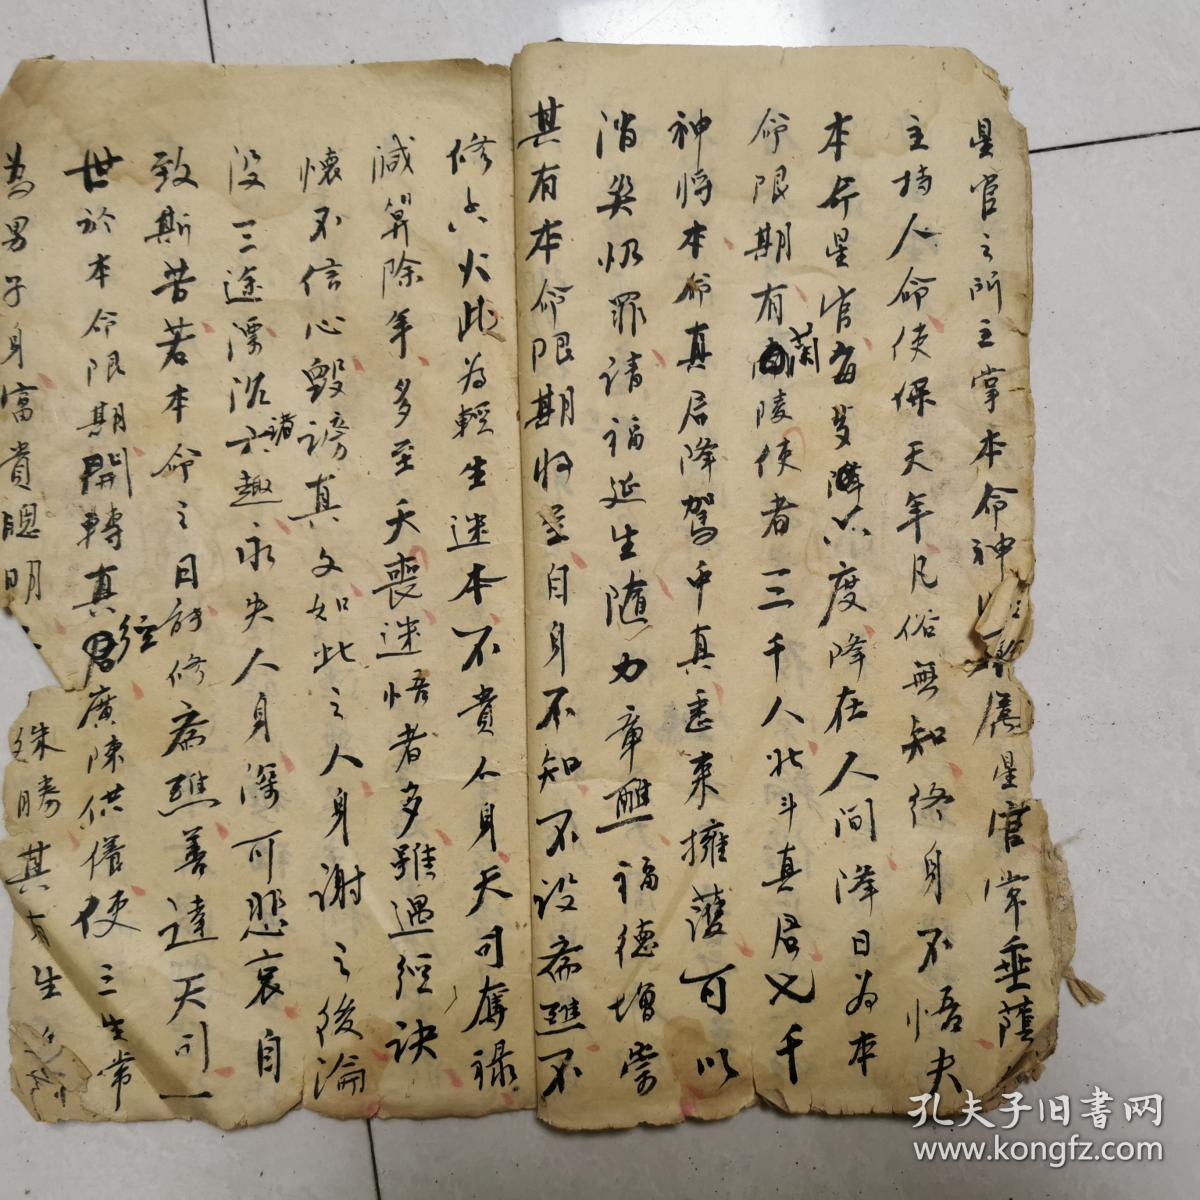 星官之所主掌本命神將本屬星官常垂蔭
主持人命使保天年凡俗無知終身不悟夫
本命星官每歲降六度降在人间降日为本
命限期有南陵使者三千人北斗真君七千
神将本命真君降驾中真悉来擁護可以
消灾忏罪請福延生随力章醮福德增崇
其有本命限期将至自身不知不设斋醮不
修香火此为輕生迷本不貴人身天司奪禄
减算除年多至夭喪迷悟者多雖遇经诀
懷不信心毀谤真文如此之人身谢之後淪
没三途漂沉諸趣永失人身深可悲哀自
致斯苦若本命之日能修斋醮善達天司一
世於本命限期開轉真经廣陳供偹使三生常
為男子身富貴聰明 殊勝其有生
孔夫子旧書网
www.kongfz.com